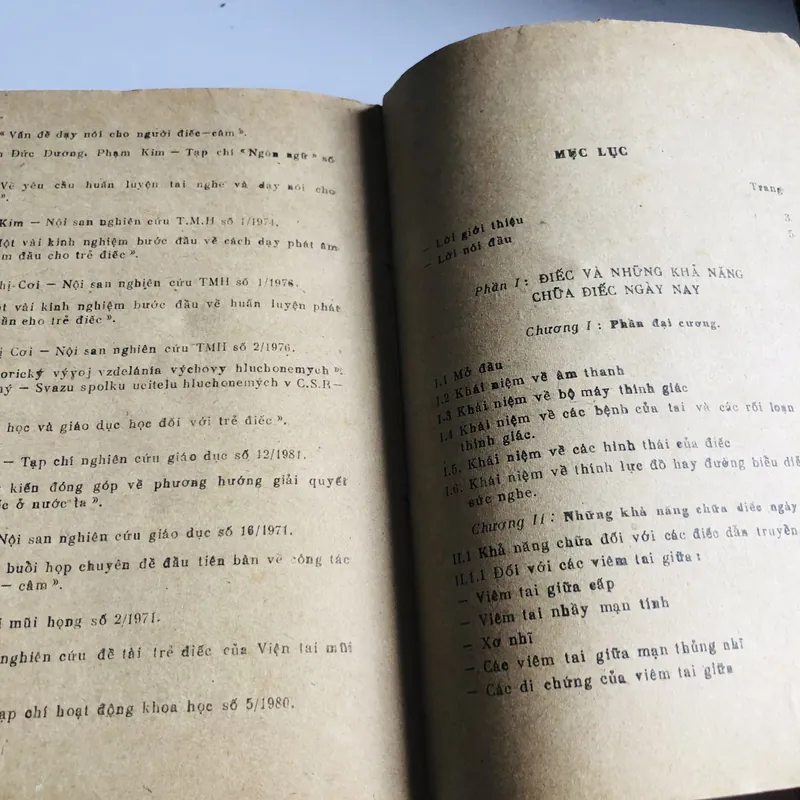 « Vấn đề dạy nói cho người điếc—câm ».
Đức Dương, Phạm Kim — Tạp chí “Ngôn ngữ” số
Về yêu cầu huấn luyện tai nghe và dạy nói cho
».
Kim — Nội san nghiên cứu T.M.H số 1/1974.
Một vài kinh nghiệm bước đầu về cách dạy phát âm
đầu cho trẻ điếc ».
Cơi — Nội san nghiên cứu TMH số 1/1976.
vài kinh nghiệm bước đầu về huấn luyện phát
cho trẻ điếc ».
Cơi — Nội san nghiên cứu TMH số 2/1976.
výyoj vzdelánia výchovy hluchonemych ».
— Svazu spolku ucitelu hluchonemých v C.S.R—
học và giáo dục học đối với trẻ điếc ».
— Tạp chí nghiên cứu giáo dục số 12/1981.
kiến đóng góp về phương hướng giải quyết
ở nước ta ».
Nội san nghiên cứu giáo dục số 16/1971.
buổi họp chuyên đề đầu tiên bàn về công tác
— câm ».
mũi họng số 2/1971.
nghiên cứu đề tài trẻ điếc của Viện tai mũi
chí hoạt động khoa học số 5/1980.
MỤC LỤC
Trang
— Lời giới thiệu 3
— Lời nói đầu 5
Phần I : ĐIẾC VÀ NHỮNG KHẢ NĂNG
CHỮA ĐIẾC NGÀY NAY
Chương I : Phần đại cương.
I.1 Mở đầu
I.2 Khái niệm về âm thanh
I.3 Khái niệm về bộ máy thính giác
I.4 Khái niệm về các bệnh của tai và các rối loạn
thính giác.
I.5. Khái niệm về các hình thái của điếc
I.6. Khái niệm về thính lực đồ hay đường biểu
sức nghe.
Chương II : Những khả năng chữa điếc ngày
II.1 Khả năng chữa đối với các điếc dẫn truyền
II.1.1 Đối với các viêm tai giữa :
— Viêm tai giữa cấp
— Viêm tai nhầy mạn tính
— Xơ nhĩ
— Các viêm tai giữa mạn thủng nhĩ
— Các di chứng của viêm tai giữa